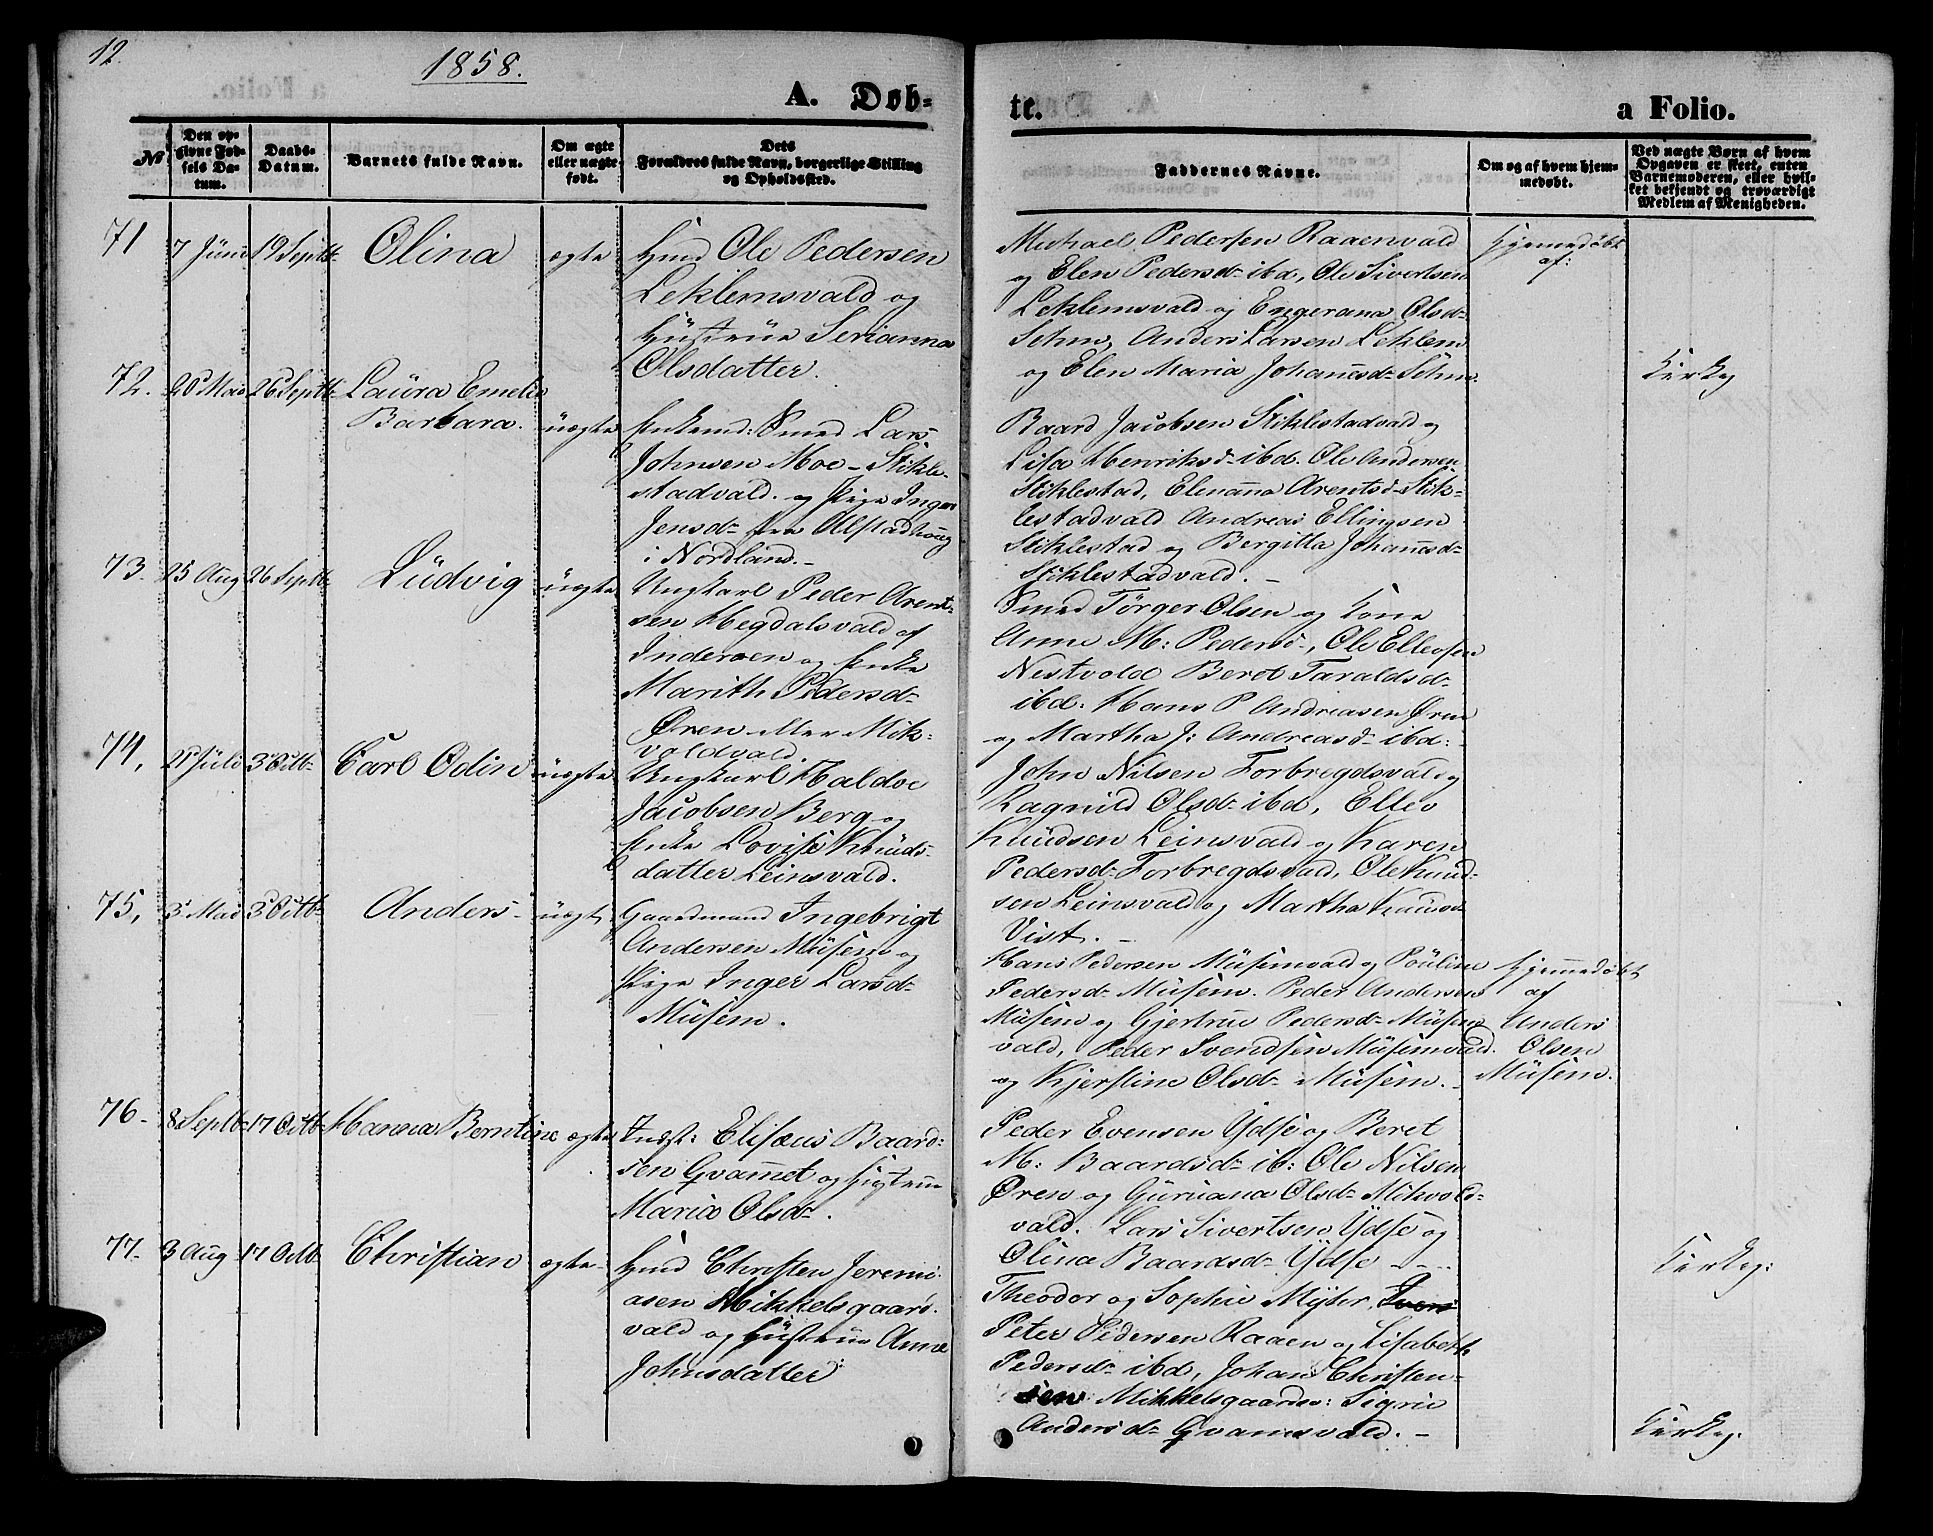 12.
1858.
A. Døb-
te.
a Folio.
No
Den op-
givne Fød-
sels Da-
tum.
Daabs-
Datum.
Barnets fulde Navn.
Om ægte
eller uægte
født.
Dets
Forældres fulde Navn, borgerlige Stilling
og Opholdssted.
Faddernes Navne.
Om og af hvem hjem-
medøbt.
Ved uægte Børn af hvem
Opgaven er skeet, enten
Barnemoderen, eller hvil-
ket bekjendt og troværdigt
Medlem af Menigheden.
71
7 Juni
19 Septbr
Olina
ægte
Hmd Ole Pedersen
Leklemsvald og
Hustrue Serianna
Olsdatter.
Michael Pedersen Raaenvald
og Elen Pedersd- ibd, Ole Sivertsen
Leklemsvald og Engerana Olsd-
Sehm, Anders Larsen Leklem
og Elen Maria Johannesd- Sehm.
Hjemmedøbt
af:
72.
20 Mai
26 Septbr
Laura Emelie
Barbara.
uægte
Enkemd: Smed Lars
Johnsen Moe - Stikle-
stadvald. og Pige Inger
Jensd- fra Alstadhoug
i Nordland. -
Baard Jacobsen Stiklestadvald og
Lisa Henriksd- ibd. Ole Andersen
Stiklestad, Elenanna Arentsd- Stik-
lestadvald Andreas Ellingsen
Stiklestad og Bergitta Johannesd-
Stiklestadvald. -
73.
25 Aug
26 Septbr
Ludvig
uægte
Ungkarl Peder Arent-
sen Hegdalsvald af
Inderøen og Enke
Marith Pedersd-
Øren eller Mik-
voldvald.
Smed Törger Olsen og Kone
Anne M: Pedersd-, Ole Ellevsen
Nestvold Beret Taraldsd-
ibd. Hans P Andreasen Øren
og Martha J: Andreasd- ibd:
74,
21 Juli
3 Octbr
Carl Odin
uægte
Ungkarl Haldoe
Jacobsen Berg og
Enke Lovise Knuds-
datter Leinsvald.
John Nilsen Forbregdsvald og
Ragnild Olsd- ibd, Ellev
Knudsen Leinsvald og Karen
Pedersd- Forbregdsvad, Ole Knud-
sen Leinsvald og Martha Knudsd-
Vist. -
75,
3 Mai
3 Octbr
Anders
uægte
Gaardmand Ingebrigt
Andersen Musem og
Pige Inger Larsd-
Musem.
Hans Pedersen Musemvald og Pouline
Pedersd- Musem. Peder Andersen
Musem og Gjertrue Pedersd- Musem
vald, Peder Svendsen Musemvald.
og Kjerstine Olsd- Musem. -
Hjemmedøbt
af
Anders
Olsen
Musem.
76-
8 Septbr
17 Octbr
Hanna Berntine
ægte
Indst: Elisæus Baard-
sen Gvammet og Hustrue
Maria Olsd-.
Peder Evensen Ydse og Beret
M: Baardsd- ib: Ole Nilsen
Øren og Guruana Olsd- Mikvold-
vald. Lars Sivertsen Ydse og
Olina Baardsd- Ydse - - - -
77-
3 Aug
17 Octb
Christian
ægte
Hmd Christen Jeremi-
asen Mikkelsgaard-
vald og Hustrue Anne
Johnsdatter
Theodor og Sophie Mÿhr,
Peter Pedersen Raaen og Lisabeth
Pedersd- ibd, Johan Christen-
sen Mikkelsgaarden: Sigrie
Andersd- Gvamsvald. -